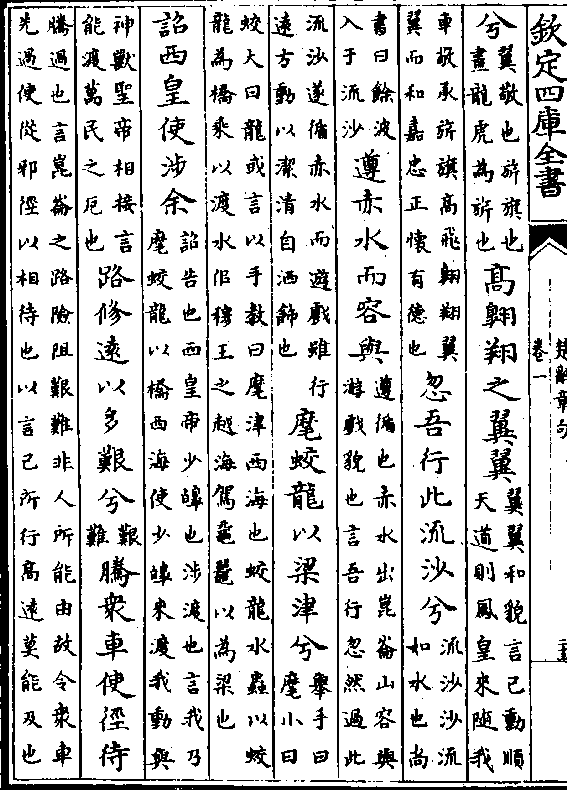 欽定四庫全書
楚辭章句
卷一
兮翼敬也旂旗也畫龍虎為旂也高翺翔之翼翼翼翼和貌言己動順天道則鳳皇來隨我
車敬承旂旗高飛翺翔翼翼而和嘉忠正懷有德也忽吾行此流沙兮流沙沙流如水也尚
書曰餘波入于流沙遵赤水而容與遵循也赤水出崑崙山容與游戲貌也言吾行忽然過此
流沙遂循赤水而遊戲雖行遠方動以潔清自洒飾也麾蛟龍以梁津兮舉手曰麾小曰
蛟大曰龍或言以手教曰麾津西海也蛟龍水蟲以蛟龍為橋乘以渡水佀穆王之越海駕黿鼉以為梁也
詔西皇使涉余詔告也西皇帝少皥也涉渡也言我乃麾蛟龍以橋西海使少皥來渡我動與
神獸聖帝相接言能渡萬民之厄也路修遠以多艱兮艱難騰衆車使徑待
騰過也言崑崙之路險阻艱難非人所能由故令衆車先過使從邪徑以相待也以言己所行高遠莫能及也